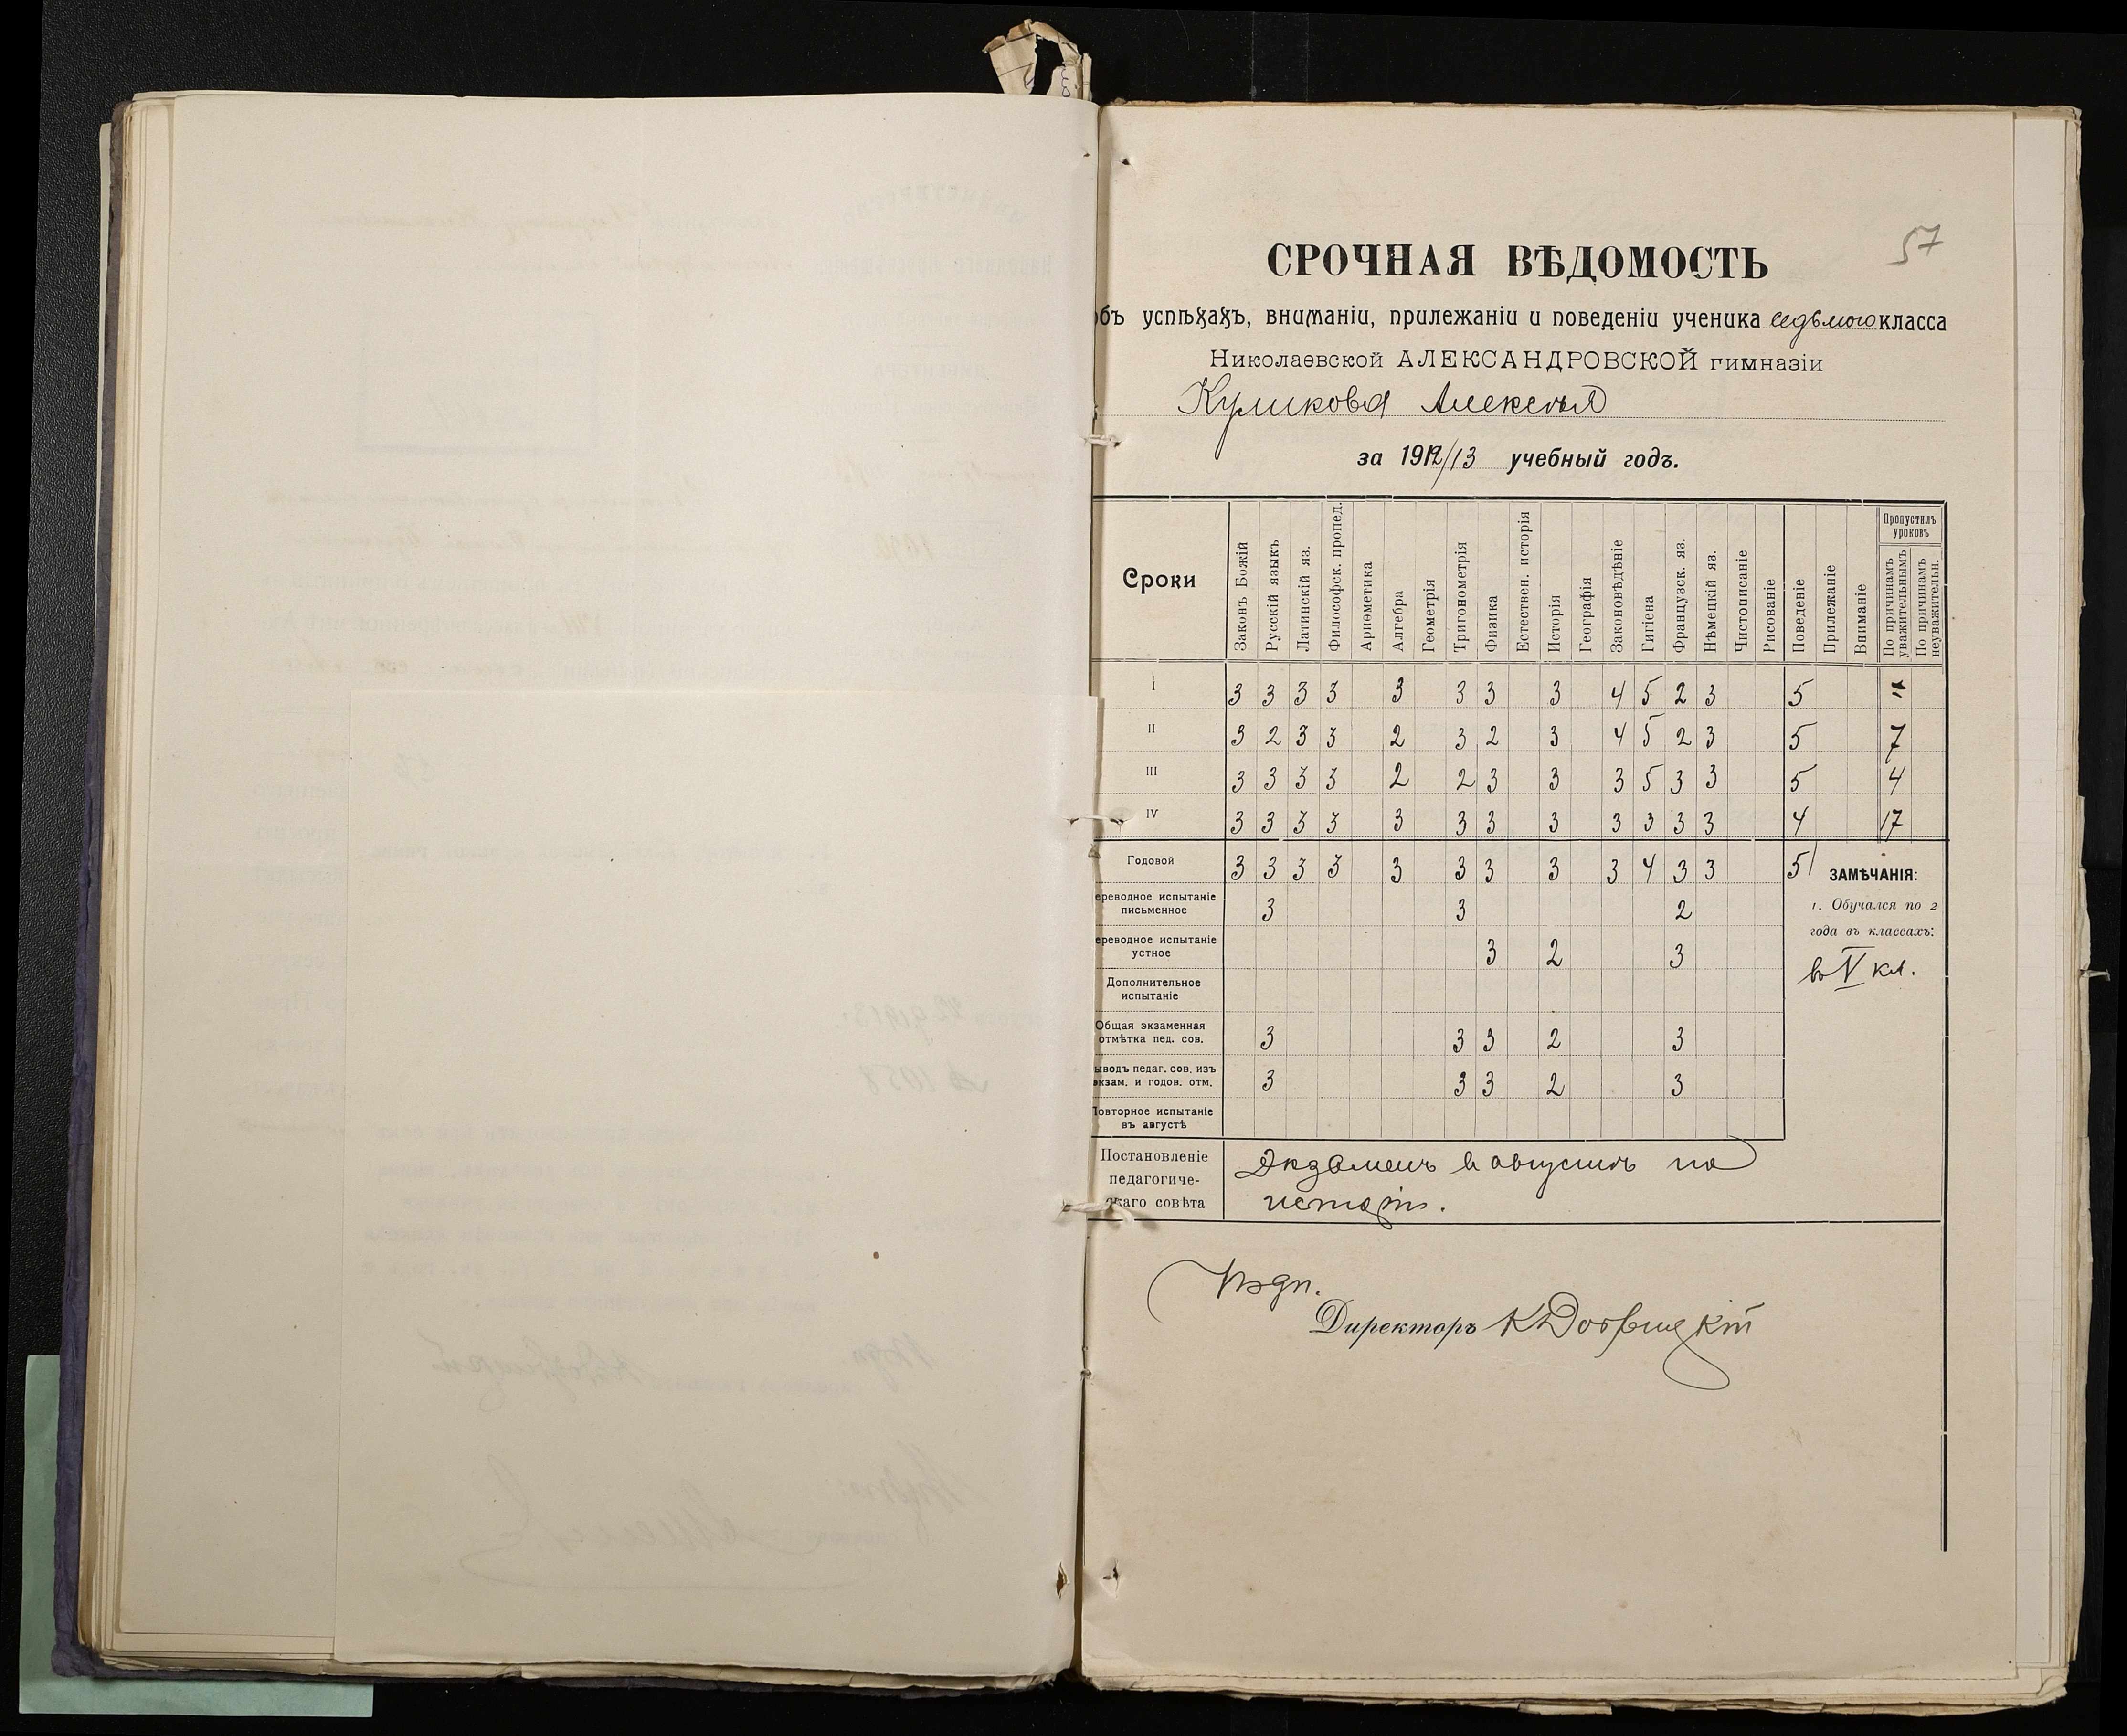 57
СРОЧНАЯ ВѢДОМОСТЬ
объ успѣхахъ, вниманіи, прилежаніи и поведеніи ученика седьмого класса
Николаевской АЛЕКСАНДРОВСКОЙ гимназіи
Куликова Алексѣя
за 1912/13 учебный годъ.
Сроки Законъ Божій Русскій языкъ Латинскій яз. Философск. пропед. Ариѳметика Алгебра Геометрія Тригонометрія Физика Естествен. исторія Исторія Географія Законовѣдѣніе Гигіена Французск. яз. Нѣмецкій яз. Чистописаніе Рисованіе Поведеніе Прилежаніе Вниманіе Пропустилъ уроковъ По причинамъ уважительнымъ По причинамъ неуважительн.
I 3 3 3 3 3 3 3 3 4 5 2 3 5
II 3 2 3 3 2 3 2 3 4 5 2 3 5 7
III 3 3 3 3 2 2 3 3 3 5 3 3 5 4
IV 3 3 3 3 3 3 3 3 3 3 3 3 4 17
Годовой 3 3 3 3 3 3 3 3 3 4 3 3 5
ЗАМѢЧАНІЯ:
1. Обучался по 2
года въ классахъ:
въ V кл.
ереводное испытаніе
письменное 3 3 2
ереводное испытаніе
устное 3 2 3
Дополнительное
испытаніе
Общая экзаменная
отмѣтка пед. сов. 3 3 3 2 3
ыводъ педаг. сов. изъ
экзам. и годов. отм. 3 3 3 2 3
Повторное испытаніе
въ августѣ
Постановленіе
педагогиче-
скаго совѣта
Экзаменъ въ августѣ по
исторіи.
Подп.
Директоръ К